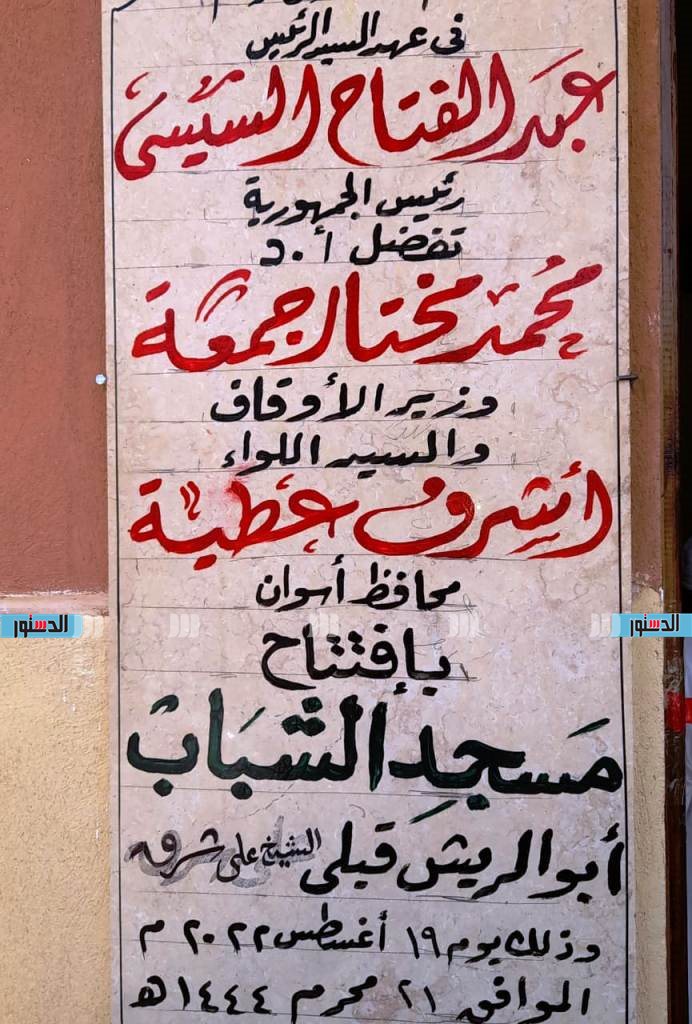 في عهد السيد الرئيس
عبد الفتاح السيسي
رئيس الجمهورية
تفضل أ.د
محمد مختار جمعة
وزير الأوقاف
والسيد اللواء
أشرف عطية
محافظ أسوان
بإفتتاح
مسجد الشباب
أبو الريش قبلى الشيخ على شرقه
وذلك يوم ١٩ أغسطس ٢٠٢٢ م
الموافق ٢١ محرم ١٤٤٤ هـ
الدستور
الدستور